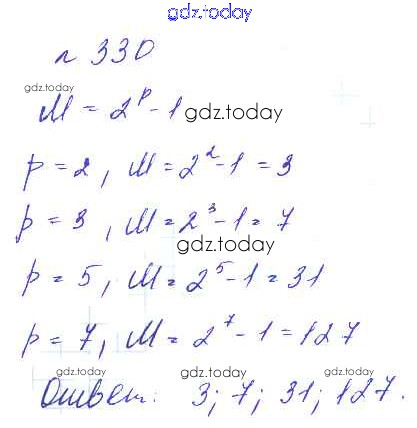 gdz.today
№ 330
gdz.today
M = 2^p - 1 gdz.today
p = 2, M = 2^2 - 1 = 3
p = 3, M = 2^3 - 1 = 7
gdz.today
p = 5, M = 2^5 - 1 = 31
p = 7, M = 2^7 - 1 = 127
gdz.today gdz.today gdz.today
Ответ: 3; 7; 31; 127.